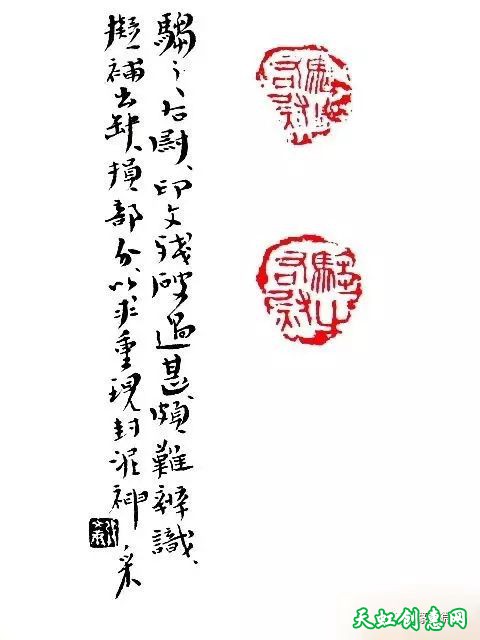 騶之右尉、印文殘破過甚、頗難辨識、
擬補出缺損部分、以求重現封泥神采
天虹创意网